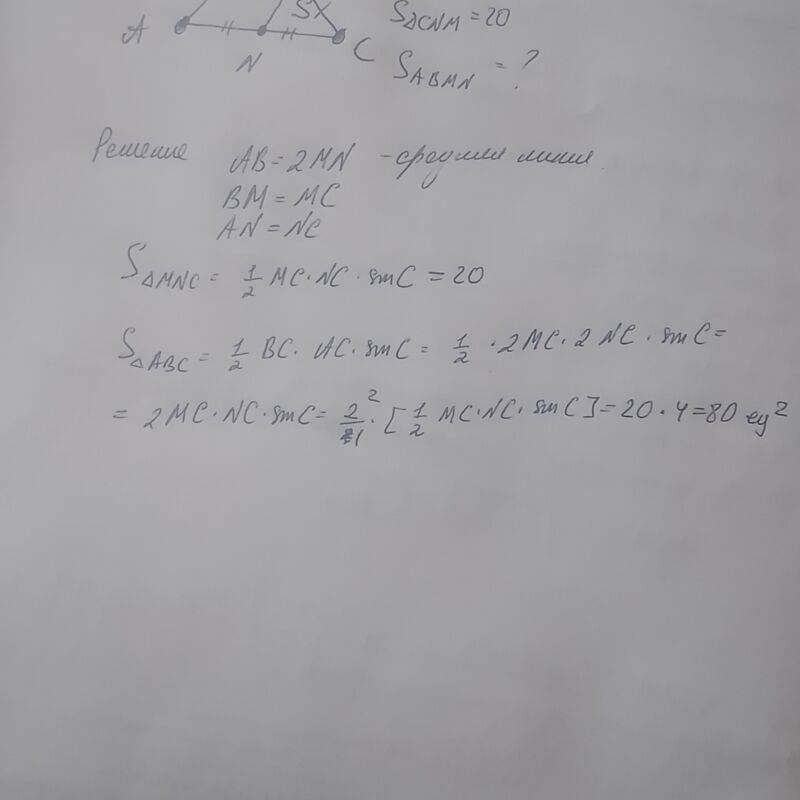 A
N
SX
C
S△CNM = 20
SABMN = ?
Решение AB = 2MN - средняя линия.
BM = MC
AN = NC
S△MNC = 1/2 MC · NC · sin C = 20
S△ABC = 1/2 BC · AC · sin C = 1/2 · 2MC · 2NC · sin C =
= 2MC · NC · sin C = 2/1 ² · [1/2 MC · NC · sin C] = 20 · 4 = 80 ед²